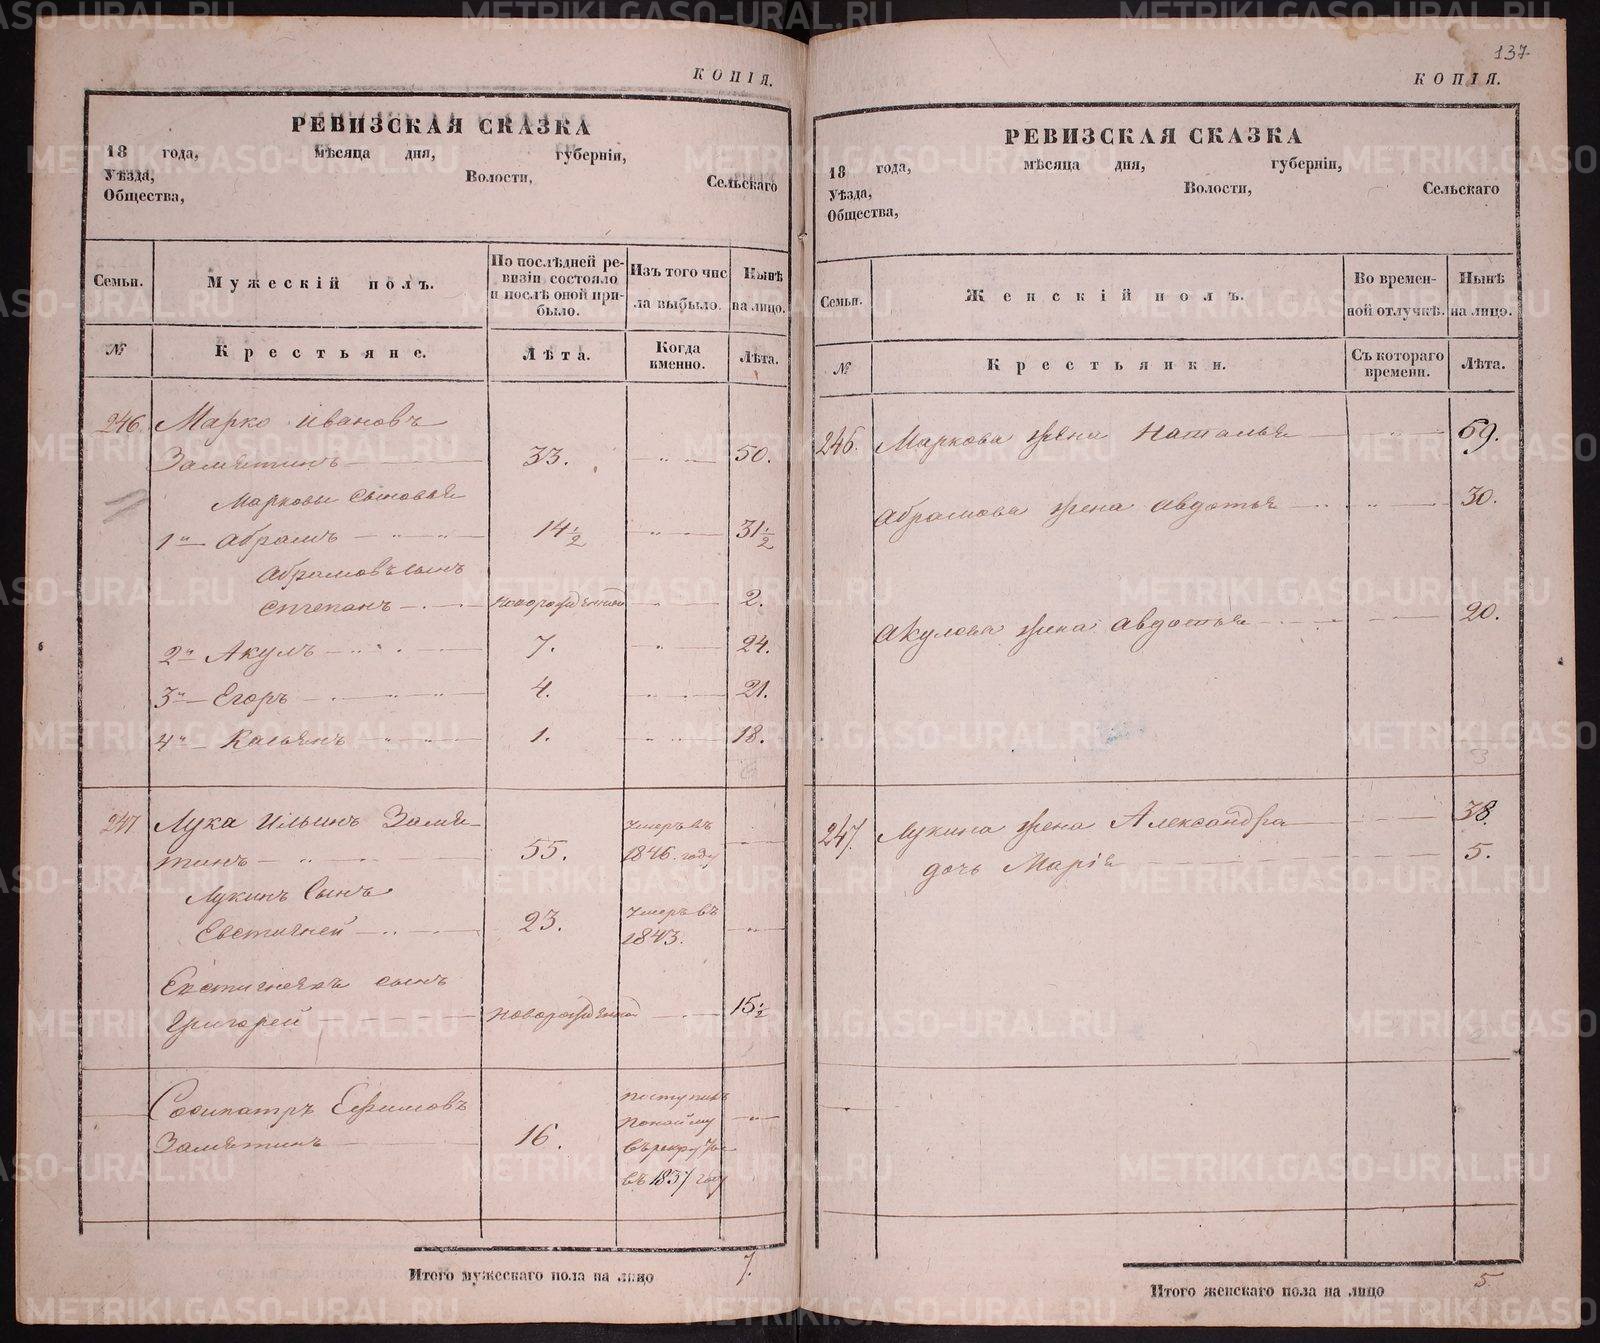 КОПІЯ.
РЕВИЗСКАЯ СКАЗКА
18 года, мѣсяца дня, губерніи,
Уѣзда, Волости, Сельскаго
Общества,
Семьи. Мужескій полъ. По послѣдней ревизіи состояло и послѣ оной прибыло. Изъ того числа выбыло. Нынѣ на лицо.
№ Крестьяне. Лѣта. Когда именно. Лѣта.
246. Марко Ивановъ
Замятинъ 33. 50.
Марковы сыновья
1й Абрамъ 14½ 31½
Абрамовъ сынъ
Степанъ новорожденной 2.
2й Акулъ 7. 24.
3й Егоръ 4. 21.
4й Касьянъ 1. 18.
6
247 Лука Ильинъ Замя- Умеръ въ
тинъ 55. 1846. году
Лукинъ Сынъ Умеръ въ
Евстигней 23. 1843.
Евстигнеявъ сынъ
Григорей новорожденной 15½
Сосипатръ Ефимовъ поступилъ
Замятинъ 16. понайму
въ рекруты
въ 1837 году
Итого мужескаго пола на лицо 7.
137.
КОПІЯ.
РЕВИЗСКАЯ СКАЗКА
18 года, мѣсяца дня, губерніи,
Уѣзда, Волости, Сельскаго
Общества,
Семьи. Женскій полъ. Во временной отлучкѣ. Нынѣ на лицо.
№ Крестьянки. Съ котораго времени. Лѣта.
246. Маркова жена Наталья 69.
Абрамова жена Авдотья 30.
Акулова жена Авдотья 20.
3
247. Лукина жена Александра 38.
дочь Марія 5.
2
Итого женскаго пола на лицо 5.
METRIKI.GASO-URAL.RU